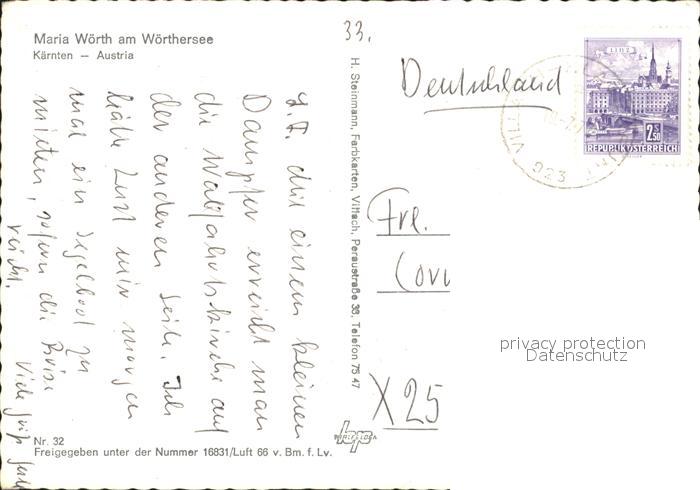 33.
Maria Wörth am Wörthersee
Kärnten – Austria
Deutschland
LINZ
2.50
REPUBLIK ÖSTERREICH
VILL
923
H. Steinmann, Farbkarten, Villach, Peraustraße 33, Telefon 75 47
Mit einem kleinen
Dampfer erreicht man
die Wallfahrtskirche auf
der anderen Seite. Ich
hätte Lust mir morgen
mal ein Segelboot zu
mieten, sofern die Brise
reicht.
Viele Grüße
Frl.
X25
privacy protection
Datenschutz
Nr. 32
Freigegeben unter der Nummer 16831/Luft 66 v. Bm. f. Lv.